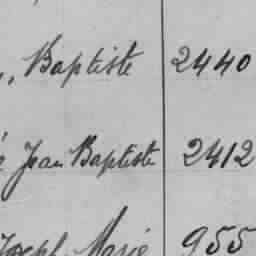 ,, Baptiste 2440
Jean Baptiste 2412
Joseph Marie 955